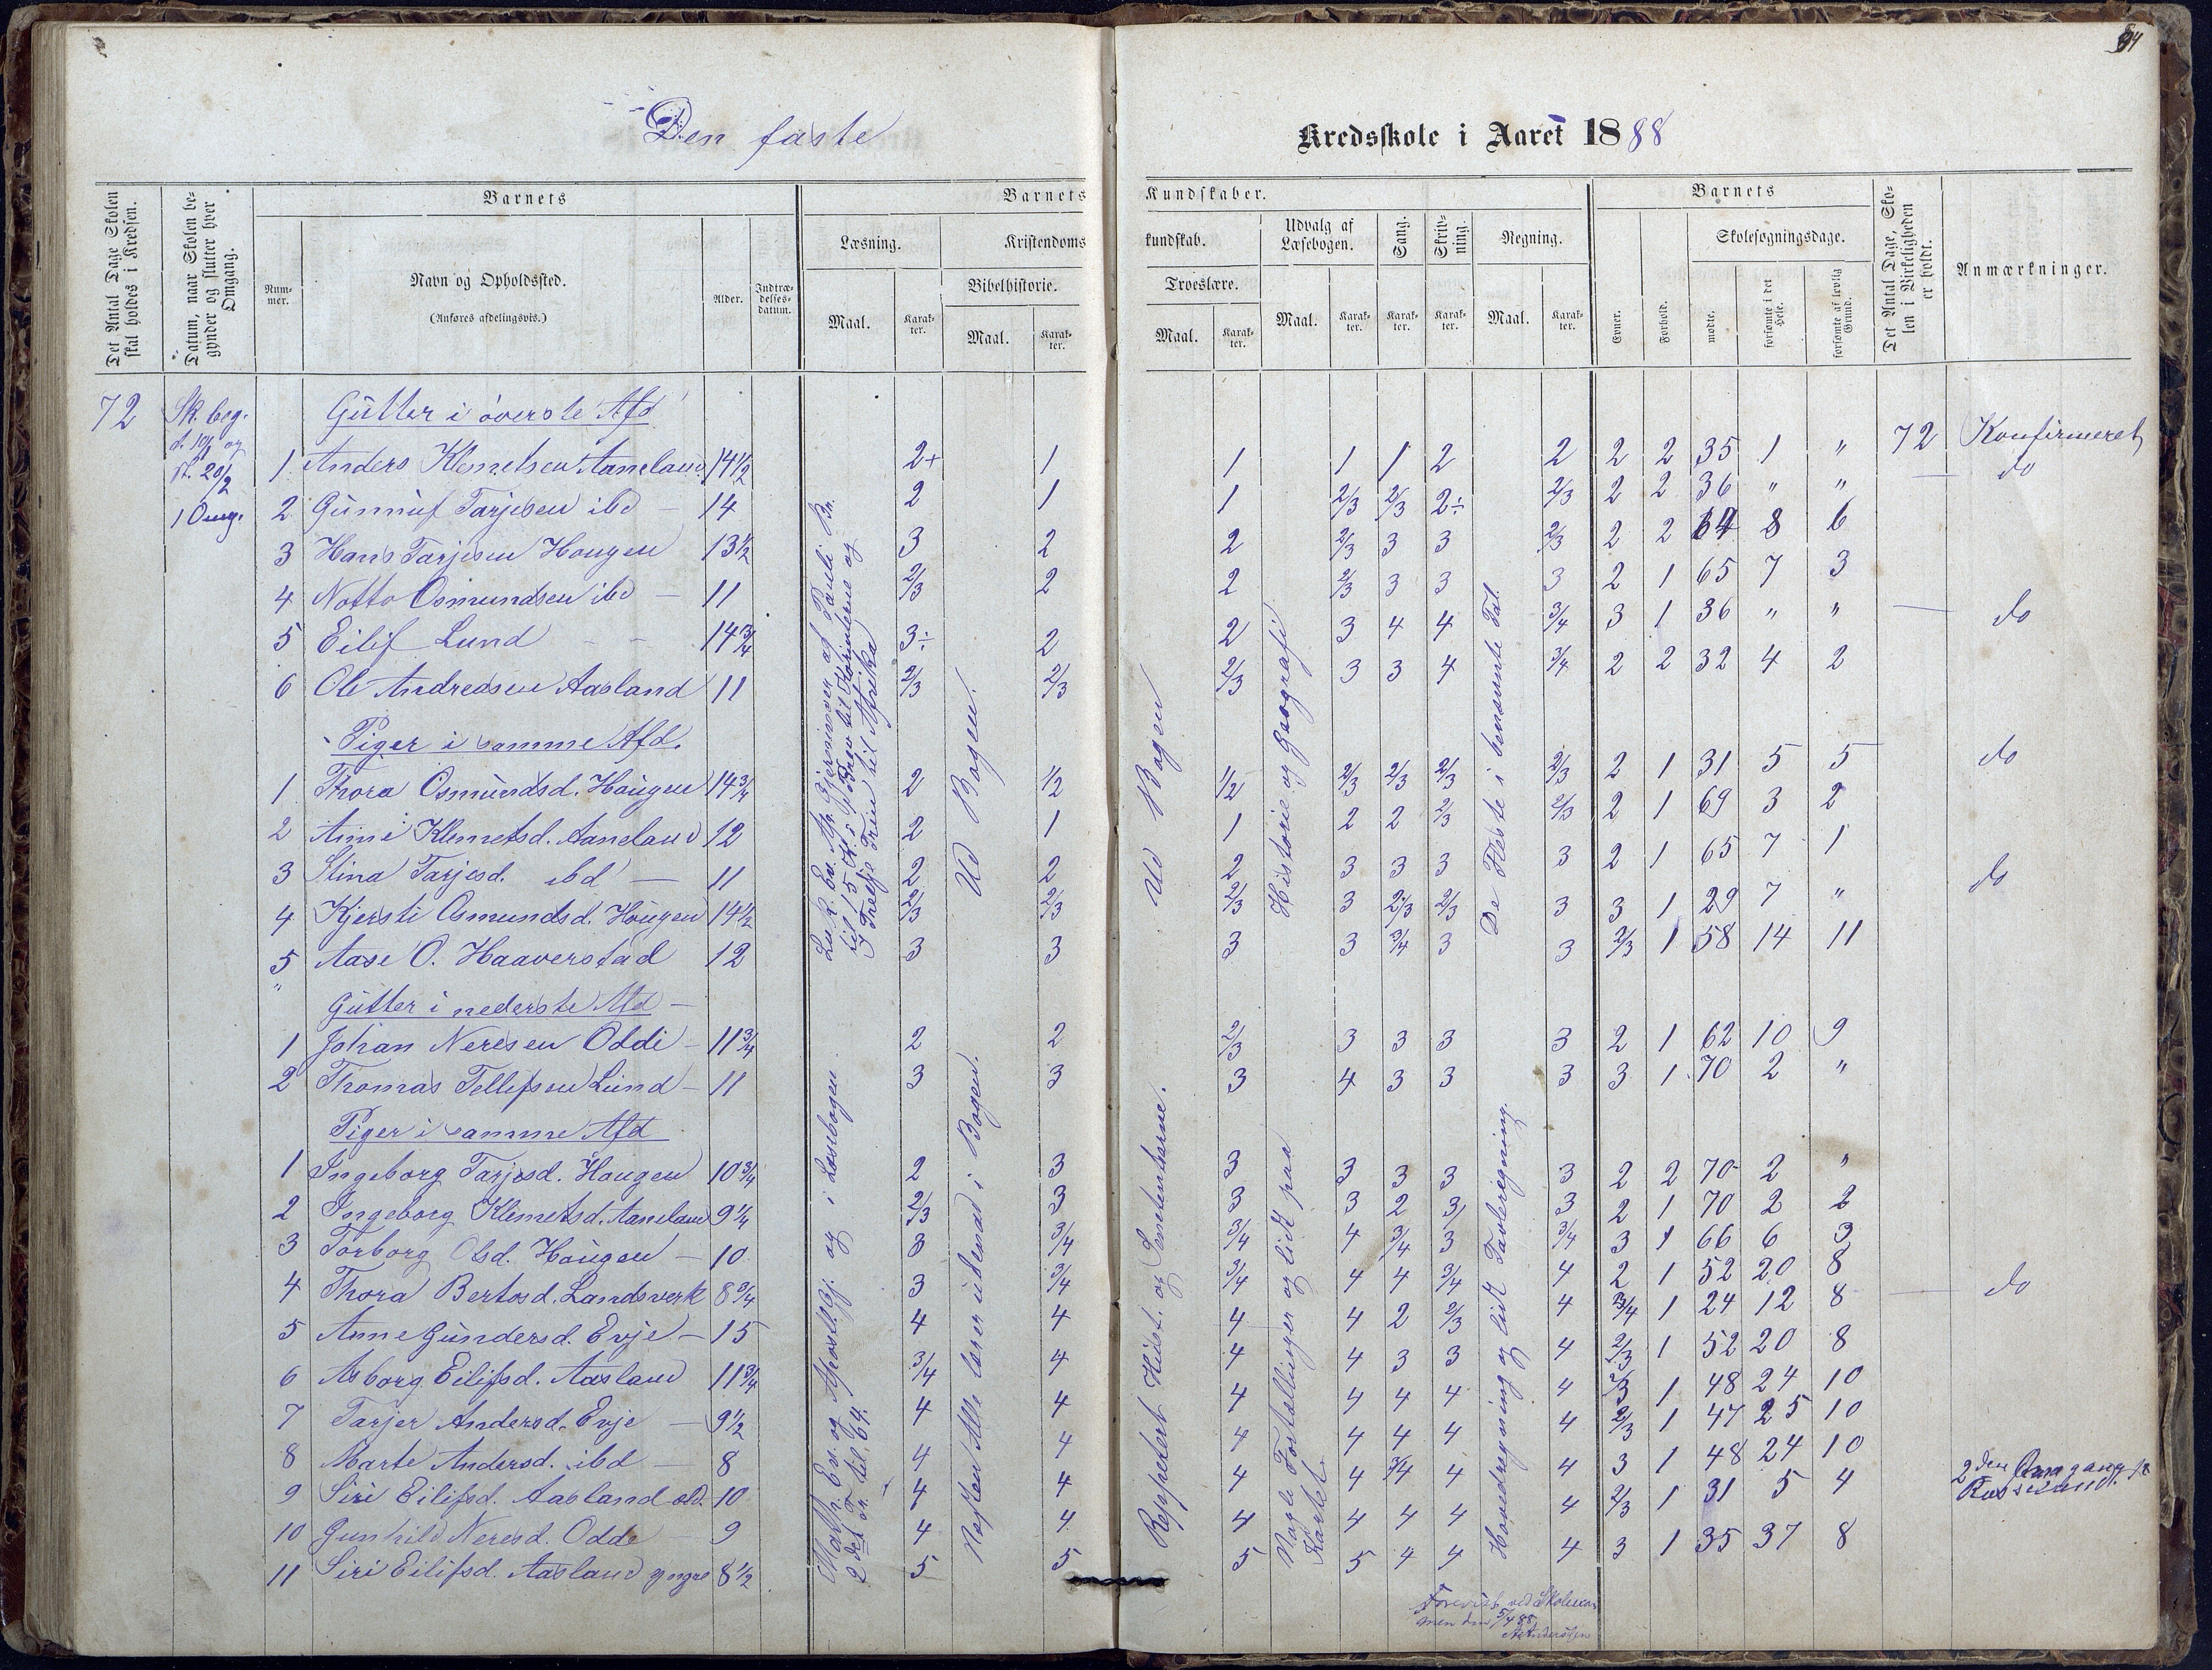 Den faste Kredsskole i Aaret 1888
Det Antal Dage Skolen skal holdes i Kredsen.
Datum, naar Skolen begynder og slutter hver Omgang.
Barnets
Nummer.
Navn og Opholdssted.
(Anføres afdelingsvis.)
Alder.
Indtrædelsesdatum.
Barnets Kundskaber.
Læsning.
Maal.
Karakter.
Kristendomskundskab.
Bibelhistorie.
Maal.
Karakter.
Troeslære.
Maal.
Karakter.
Udvalg af Læsebogen.
Maal.
Karakter.
Sang.
Karakter.
Skrivning.
Karakter.
Regning.
Maal.
Karakter.
Barnets
Evner.
Forhold.
Skolesøgningsdage.
mødte.
forsømte i det Hele.
forsømte af lovlig Grund.
Det Antal Dage, Skolen i Virkeligheden er holdt.
Anmærkninger.
72 Sk. beg.
1 Omg.
Gutter i øverste Afd
1 Anders Klemetsen Aaneland 14½ 2+ 1 1 1 1 2 2 2 2 35 1 " 72 Konfirmeret
2 Gunnuf Tarjesen ibd – 14 2 1 1 2/3 2/3 2÷ 2/3 2 2 36 " " — do
3 Hans Tarjesen Hougen 13½ 3 2 2 2/3 3 3 2/3 2 2 64 8 6
4 Notto Osmundsen ibd – 11 2/3 2 2 2/3 3 3 3 2 1 65 7 3
5 Eilif Lund – – 14¾ 3÷ 2 2 3 4 4 3/4 3 1 36 " " — do
6 Ole Andreasen Aasland 11 2/3 2/3 2/3 3 3 4 3/4 2 2 32 4 2
Piger i samme Afd.
1 Thora Osmundsd. Hougen 14¾ 2 1/2 1/2 2/3 2/3 2/3 2/3 2 1 31 5 5 do
2 Anne Klemetsd. Aaneland 12 2 1 1 2 2 2/3 2/3 2 1 69 3 2
3 Stina Tarjesd. ibd — 11 2 2 2 3 3 3 3 2 1 65 7 1
4 Kjersti Osmundsd. Hougen 14½ 2/3 2/3 2/3 3 2/3 2/3 3 3 1 29 7 " do
5 Aase O. Haaverstad 12 3 3 3 3 3/4 3 3 2/3 1 58 14 11
Gutter i nederste Afd –
1 Johan Neresen Odde – 11¾ 2 2 2/3 3 3 3 3 2 1 62 10 9
2 Thomas Tellefsen Lund – 11 3 3 3 4 3 3 3 3 1 70 2 "
Piger i samme Afd
1 Ingeborg Tarjesd. Hougen 10¾ 2 3 3 3 3 3 3 2 2 70 2 "
2 Ingeborg Klemetsd. Aaneland 9¼ 2/3 3 3 3 2 3 3 2 1 70 2 2
3 Torborg Olsd. Hougen — 10 3 3/4 3/4 4 3/4 3 3/4 3 1 66 6 3
4 Thora Bertosd. Landsverk 8¾ 3 3/4 3/4 4 4 3/4 4 2 1 52 20 8
5 Anne Gundersd. Evje – 15 4 4 4 4 2 2/3 4 3/4 1 24 12 8 — do
6 Asborg Eilifsd. Aasland 11¾ 3/4 4 4 4 3 3 4 2/3 1 52 20 8
7 Tarjer Andersd. Evje — 9½ 4 4 4 4 4 4 4 2/3 1 48 24 10
8 Marte Andersd. ibd — 8 4 4 4 4 4 4 4 2/3 1 47 25 10
9 Siri Eilifsd. Aasland eld. 10 4 4 4 4 3/4 4 4 3 1 48 24 10
10 Gunhild Neresd. Odde 9 4 4 4 4 4 4 4 2/3 1 31 5 4 2den Omgang
11 Siri Eilifsd. Aasland yngre 8½ 5 5 5 5 4 4 4 3 1 35 37 8
Ud Bogen.
Ud Bogen
Historie og Geografi
De Fleste i benævnte Tal.
i Læsebogen
Næsten Alle læser udenad i Bogen.
Nogle Fortællinger og lidt paa Kartet.
Hovedregning og lidt Tavleregning.
Forevist ved Skoleexamen den 5/4 88